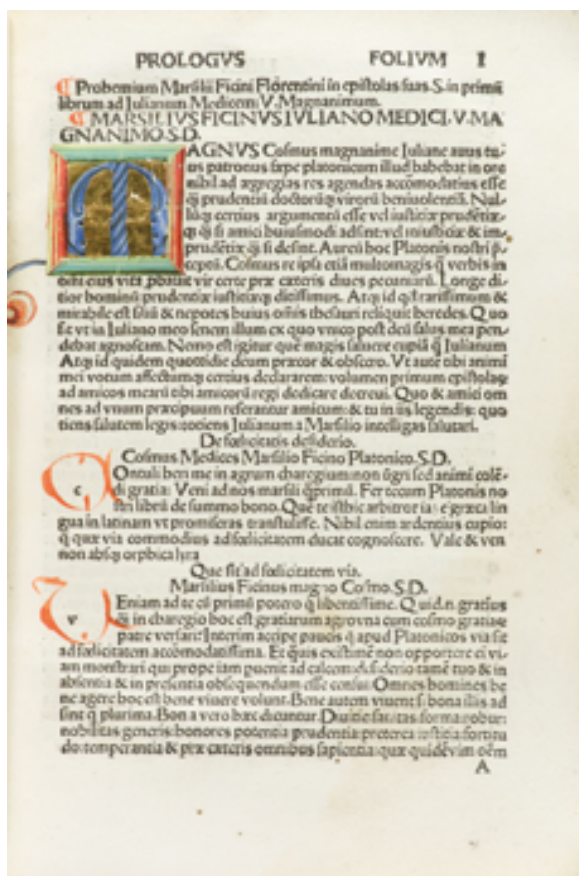 PROLOGVS FOLIVM I
¶ Prohemium Marsilii Ficini Florentini in epistolas suas. S. in primū
librum ad Iulianum Medicem V. Magnanimum.
¶ MARSILIVS FICINVS IVLIANO MEDICI. V. MA
GNANIMO. S. D.
MAGNVS Cosmus magnanime Iuliane auus tu-
us patronus sæpe platonicum illud habebat in ore
nihil ad ægregias res agendas accōmodatius esse
q̄ prudentū doctorūq; virorū beniuolentiā. Nul-
lūq; certius argumentū esse vel iustitiæ prudētiæ-
q; q̄ si amici huiusmodi adsint: vel iniustitiæ & im-
prudētiæ q̄ si desint. Aureū hoc Platonis nostri p̄-
ceptū. Cosmus re ipsa etiā multomagis q̄ verbis in
omi eius vita pbauit vir certe præ cæteris diues pecuniarū. Longe di-
tior hominū prudentiæ iustitiæq; ditissimus. Atq; id qd rarissimum &
mirabile est filiis & nepotes huius omis thesauri reliquit heredes. Quo
fit vt in Iuliano meo senem illum ex quo vnico post deū salus mea pen-
debat agnoscam. Nemo est igitur quē magis saluere cupiā q̄ Iulianum
Atq; id quidem quottidie deum præcor & obsecro. Vt autē tibi animi
mei votum affectumq; certius declararem: volumen primum epistolaꝝ
ad amicos mearū tibi amicorū regi dedicare decreui. Quo & amici om
nes ad vnum præcipuum referantur amicum: & tu in iis legendis: quo
tiens salutem legis: totiens Iulianum a Marsilio intelligas salutari.
De fœlicitatis desiderio.
Cosmus Medices Marsilio Ficino Platonico. S. D.
COntuli heri me in agrum charegium non agri sed animi colē-
di gratia: Veni ad nos marsili q̄primū. Fer tecum Platonis no
stri librū de summo bono. Quē te isthic arbitror iā e græca lin
gua in latinam vt promiseras transtulisse. Nihil enim ardentius cupio:
q̄ quæ via commodius ad fœlicitatem ducat cognoscere. Vale & veni
non absq; orphica lyra
Que sit ad fœlicitatem via.
Marsilius Ficinus magno Cosmo. S. D.
VEniam ad te cū primū potero q̄ libentissime. Quid .n. gratius
q̄ in charegio hoc est gratiarum agro vna cum cosmo gratiaꝝ
patre versari: Interim accipe paucis q̄ apud Platonicos via sit
ad fœlicitatem accōmodatissima. Et q̄uis existimē non opportere ei vi-
am monstrari qui prope iam puenit ad calcem: desiderio tamē tuo & in
absentia & in presentia obsequendum esse censui. Omnes homines be
ne agere hoc est bene viuere volunt. Bene autem viuent si bona illis ad
sint q̄ plurima. Bona vero hæc dicuntur. Diuitiæ sanitas forma: robur:
nobilitas generis: honores potentia prudentia: preterea iustitia: fortitu
do: temperantia & præ cæteris omnibus sapientia: quæ quidē vim oēm
A